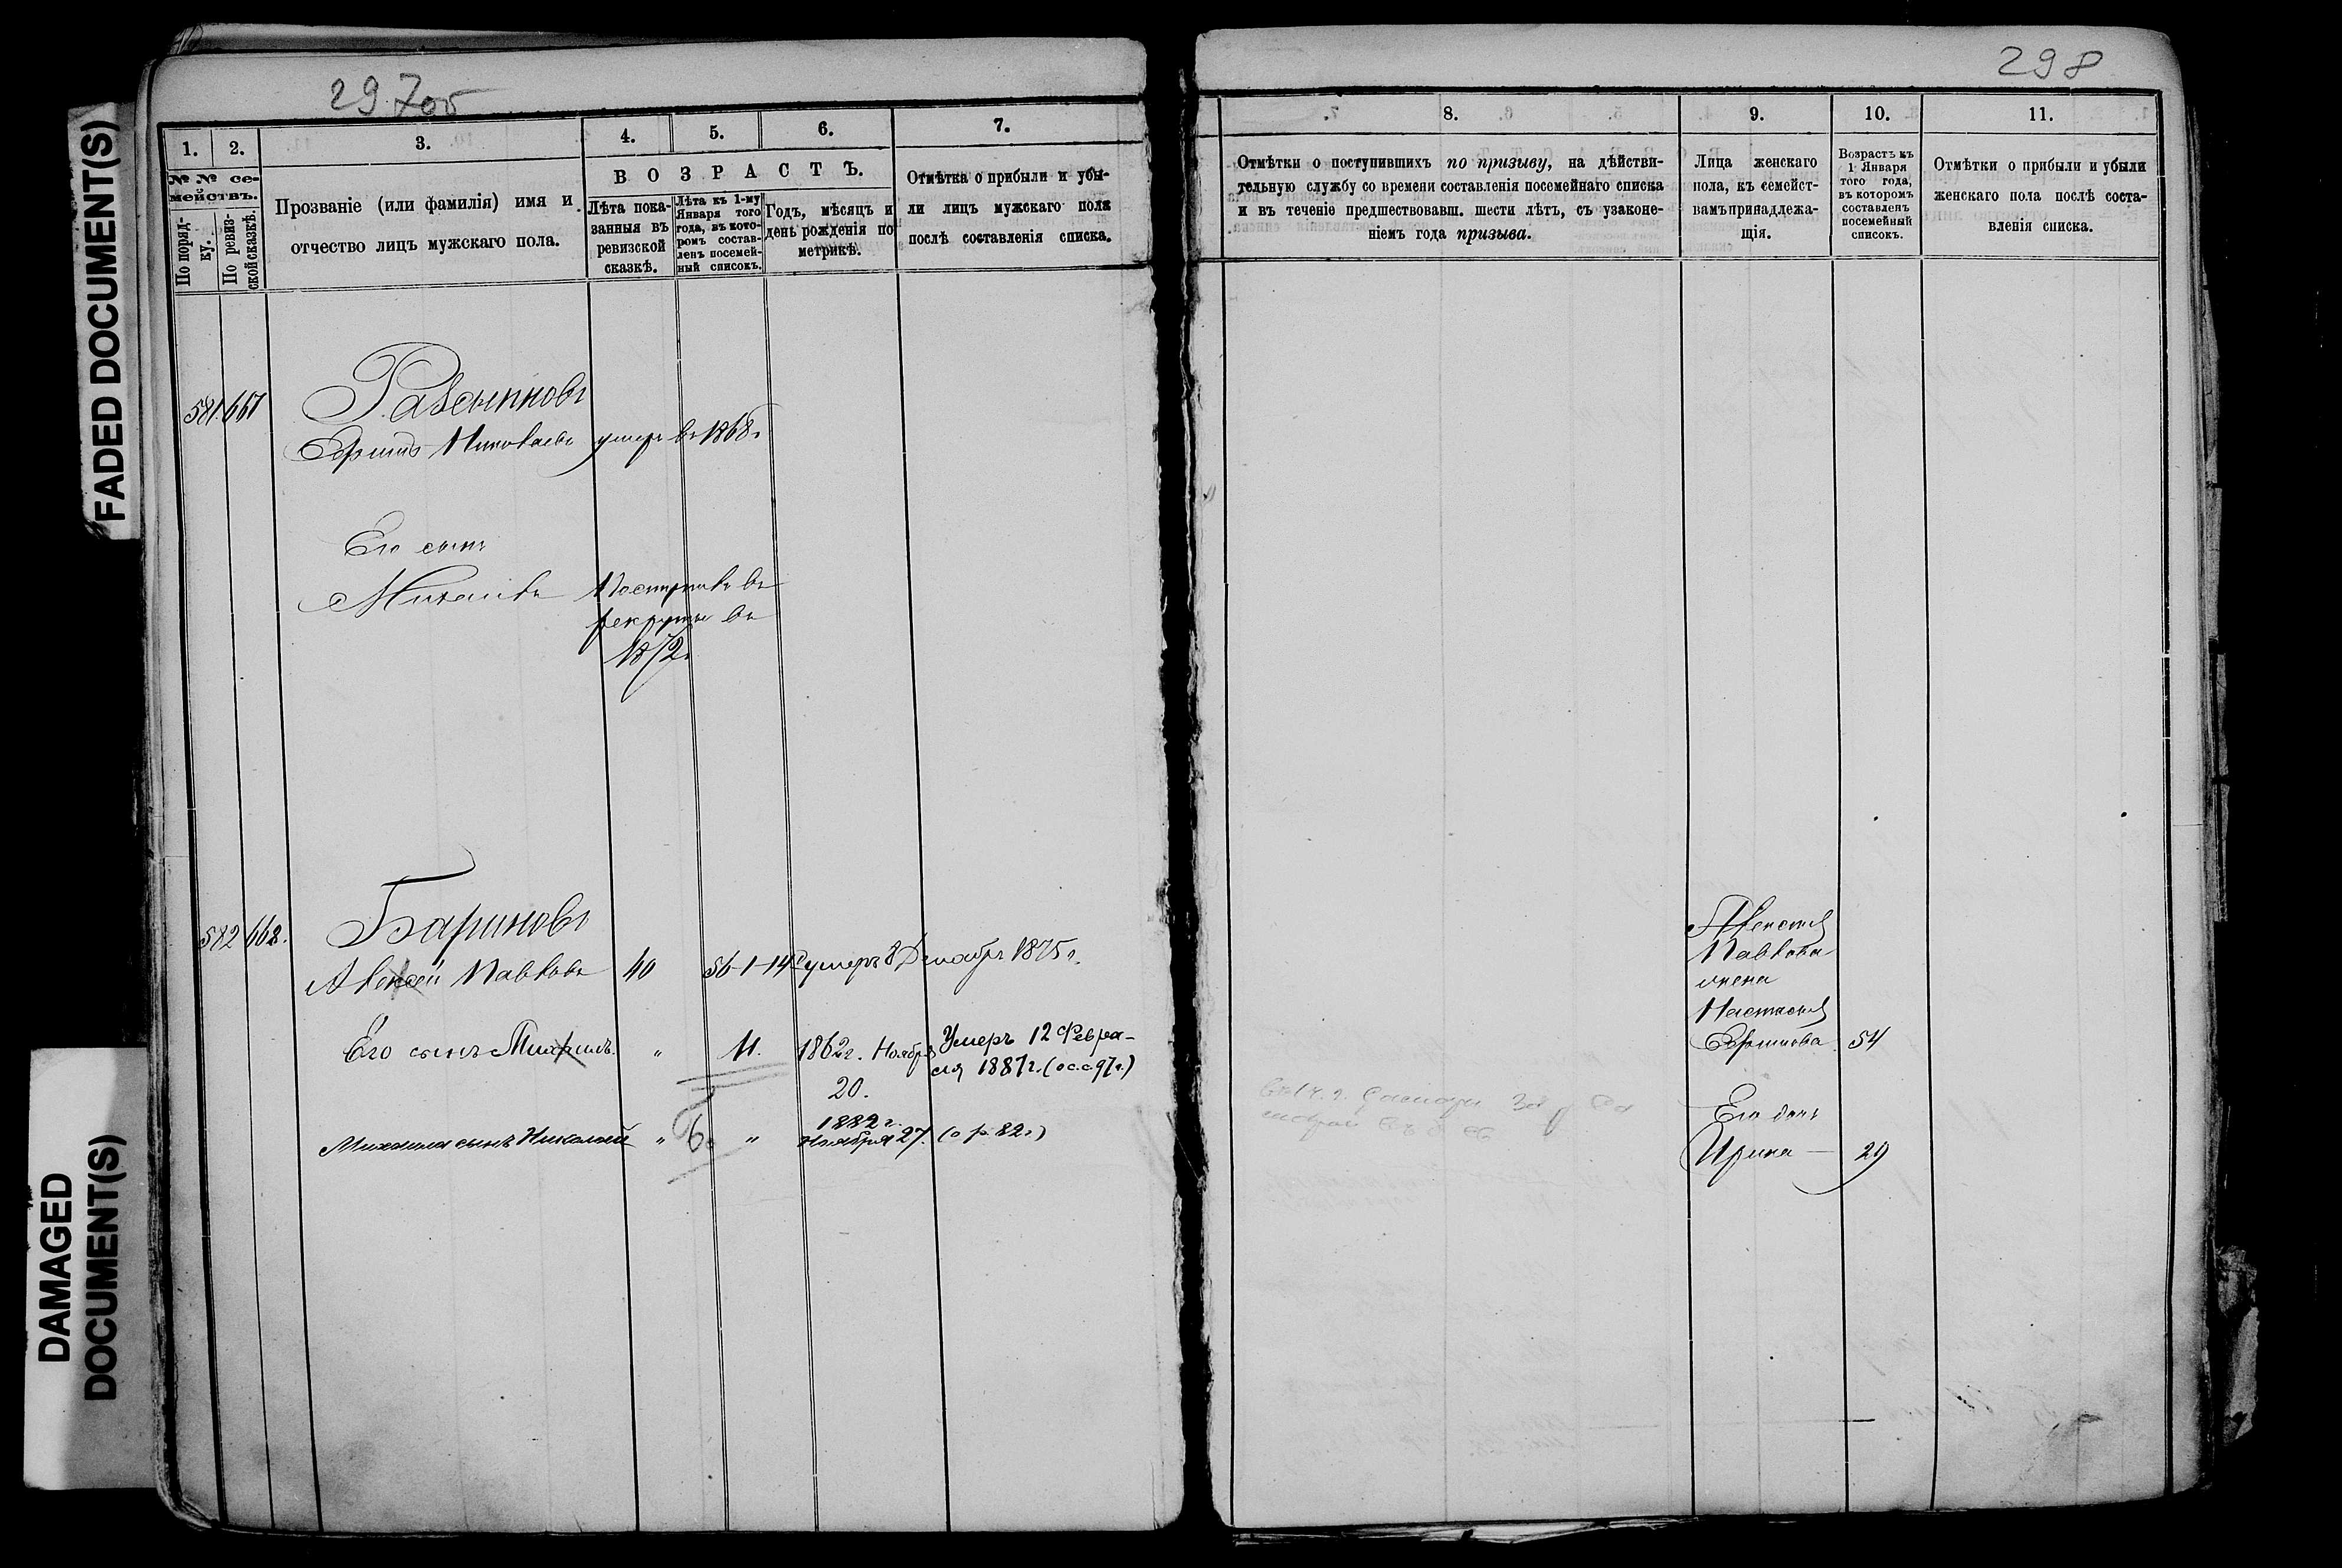 FADED DOCUMENT(S)
DAMAGED
DOCUMENT(S)
297об
1.
2.
3.
4.
5.
6.
7.
№ № се-
мействъ.
По поряд-
ку.
По ревиз-
ской сказкѣ.
Прозваніе (или фамилія) имя и
отчество лицъ мужскаго пола.
ВОЗРАСТЪ.
Лѣта пока-
занныя въ
ревизской
сказкѣ.
Лѣта къ 1-му
Января того
года, въ кото-
ромъ состав-
ленъ посемей-
ный списокъ.
Годъ, мѣсяцъ и
день рожденія по
метрикѣ.
Отмѣтка о прибыли и убы-
ли лицъ мужскаго пола
послѣ составленія списка.
581. 667
Ефимъ Николаевъ умеръ въ 1868г
Его сынъ
Михаилъ Поступилъ въ
рекруты въ
1872г
582 668.
Бариновъ
Алексѣй Павловъ 40 56-1-14 умеръ 8 Декабря 1875 г.
Его сынъ Михаилъ. " 11. 1862г. Ноября
20.
Умеръ 12 Февра-
ля 1887г.
Михаила сынъ Николай " " 1882 г.
Ноября 27. (о р. 82г)
298
8.
9.
10.
11.
Отмѣтки о поступившихъ по призыву, на дѣйстви-
тельную службу со времени составленія посемейнаго списка
и въ теченіе предшествовавш. шести лѣтъ, съ узаконе-
ніемъ года призыва.
Лица женскаго
пола, къ семейст-
вамъ принадлежа-
щія.
Возрастъ къ
1 Января
того года,
въ которомъ
составленъ
посемейный
списокъ.
Отмѣтки о прибыли и убыли
женскаго пола послѣ соста-
вленія списка.
Алексѣя
Павлова
жена
Настасья
Ефимова 54
Его дочь
Ирина — 29